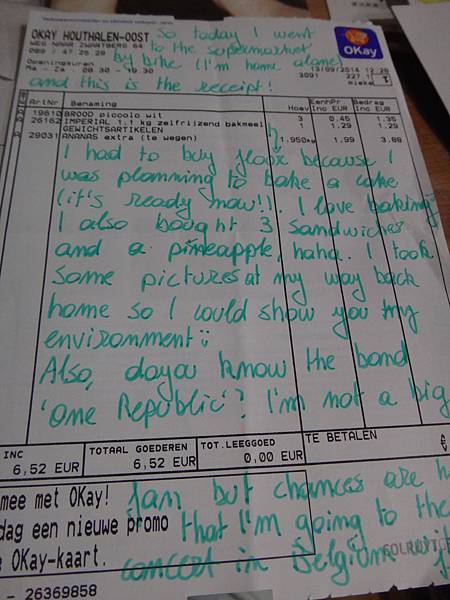 OKAY HOUTHALEN-OOST So today I went
WEG NAAR ZWARTBERG 64 to the supermarket
089 / 47 25 29 OKay
by bike (I'm home alone)
Openingsuren 13/09/2014 12:26
Ma - Za : 08:30 - 19:30 3091 227 1
and this is the receipt! mieke
ArtNr Benaming Hoev EenhPr Bedrag
Inc EUR Inc EUR
19610 BROOD piccolo wit 3 0,45 1,35
26162 IMPERIAL 1.1 kg zelfrijzend bakmeel 1 1,29 1,29
GEWICHTSARTIKELEN
29031 ANANAS extra (te wegen) 1.950kg 1,99 3,88
I had to buy flour because I
was planning to bake a cake
(it's ready now!). I love baking
I also bought 3 sandwiches
and a pineapple, haha. I took
some pictures at my way back
home so I could show you my
environment
Also, do you know the band
'One Republic'? I'm not a big
INC TOTAAL GOEDEREN TOT.LEEGGOED TE BETALEN
6,52 EUR 6,52 EUR 0,00 EUR
mee met OKay! fan but chances are
dag een nieuwe promo that I'm going to the
OKay-kaart. concert in Belgium
- 26369858